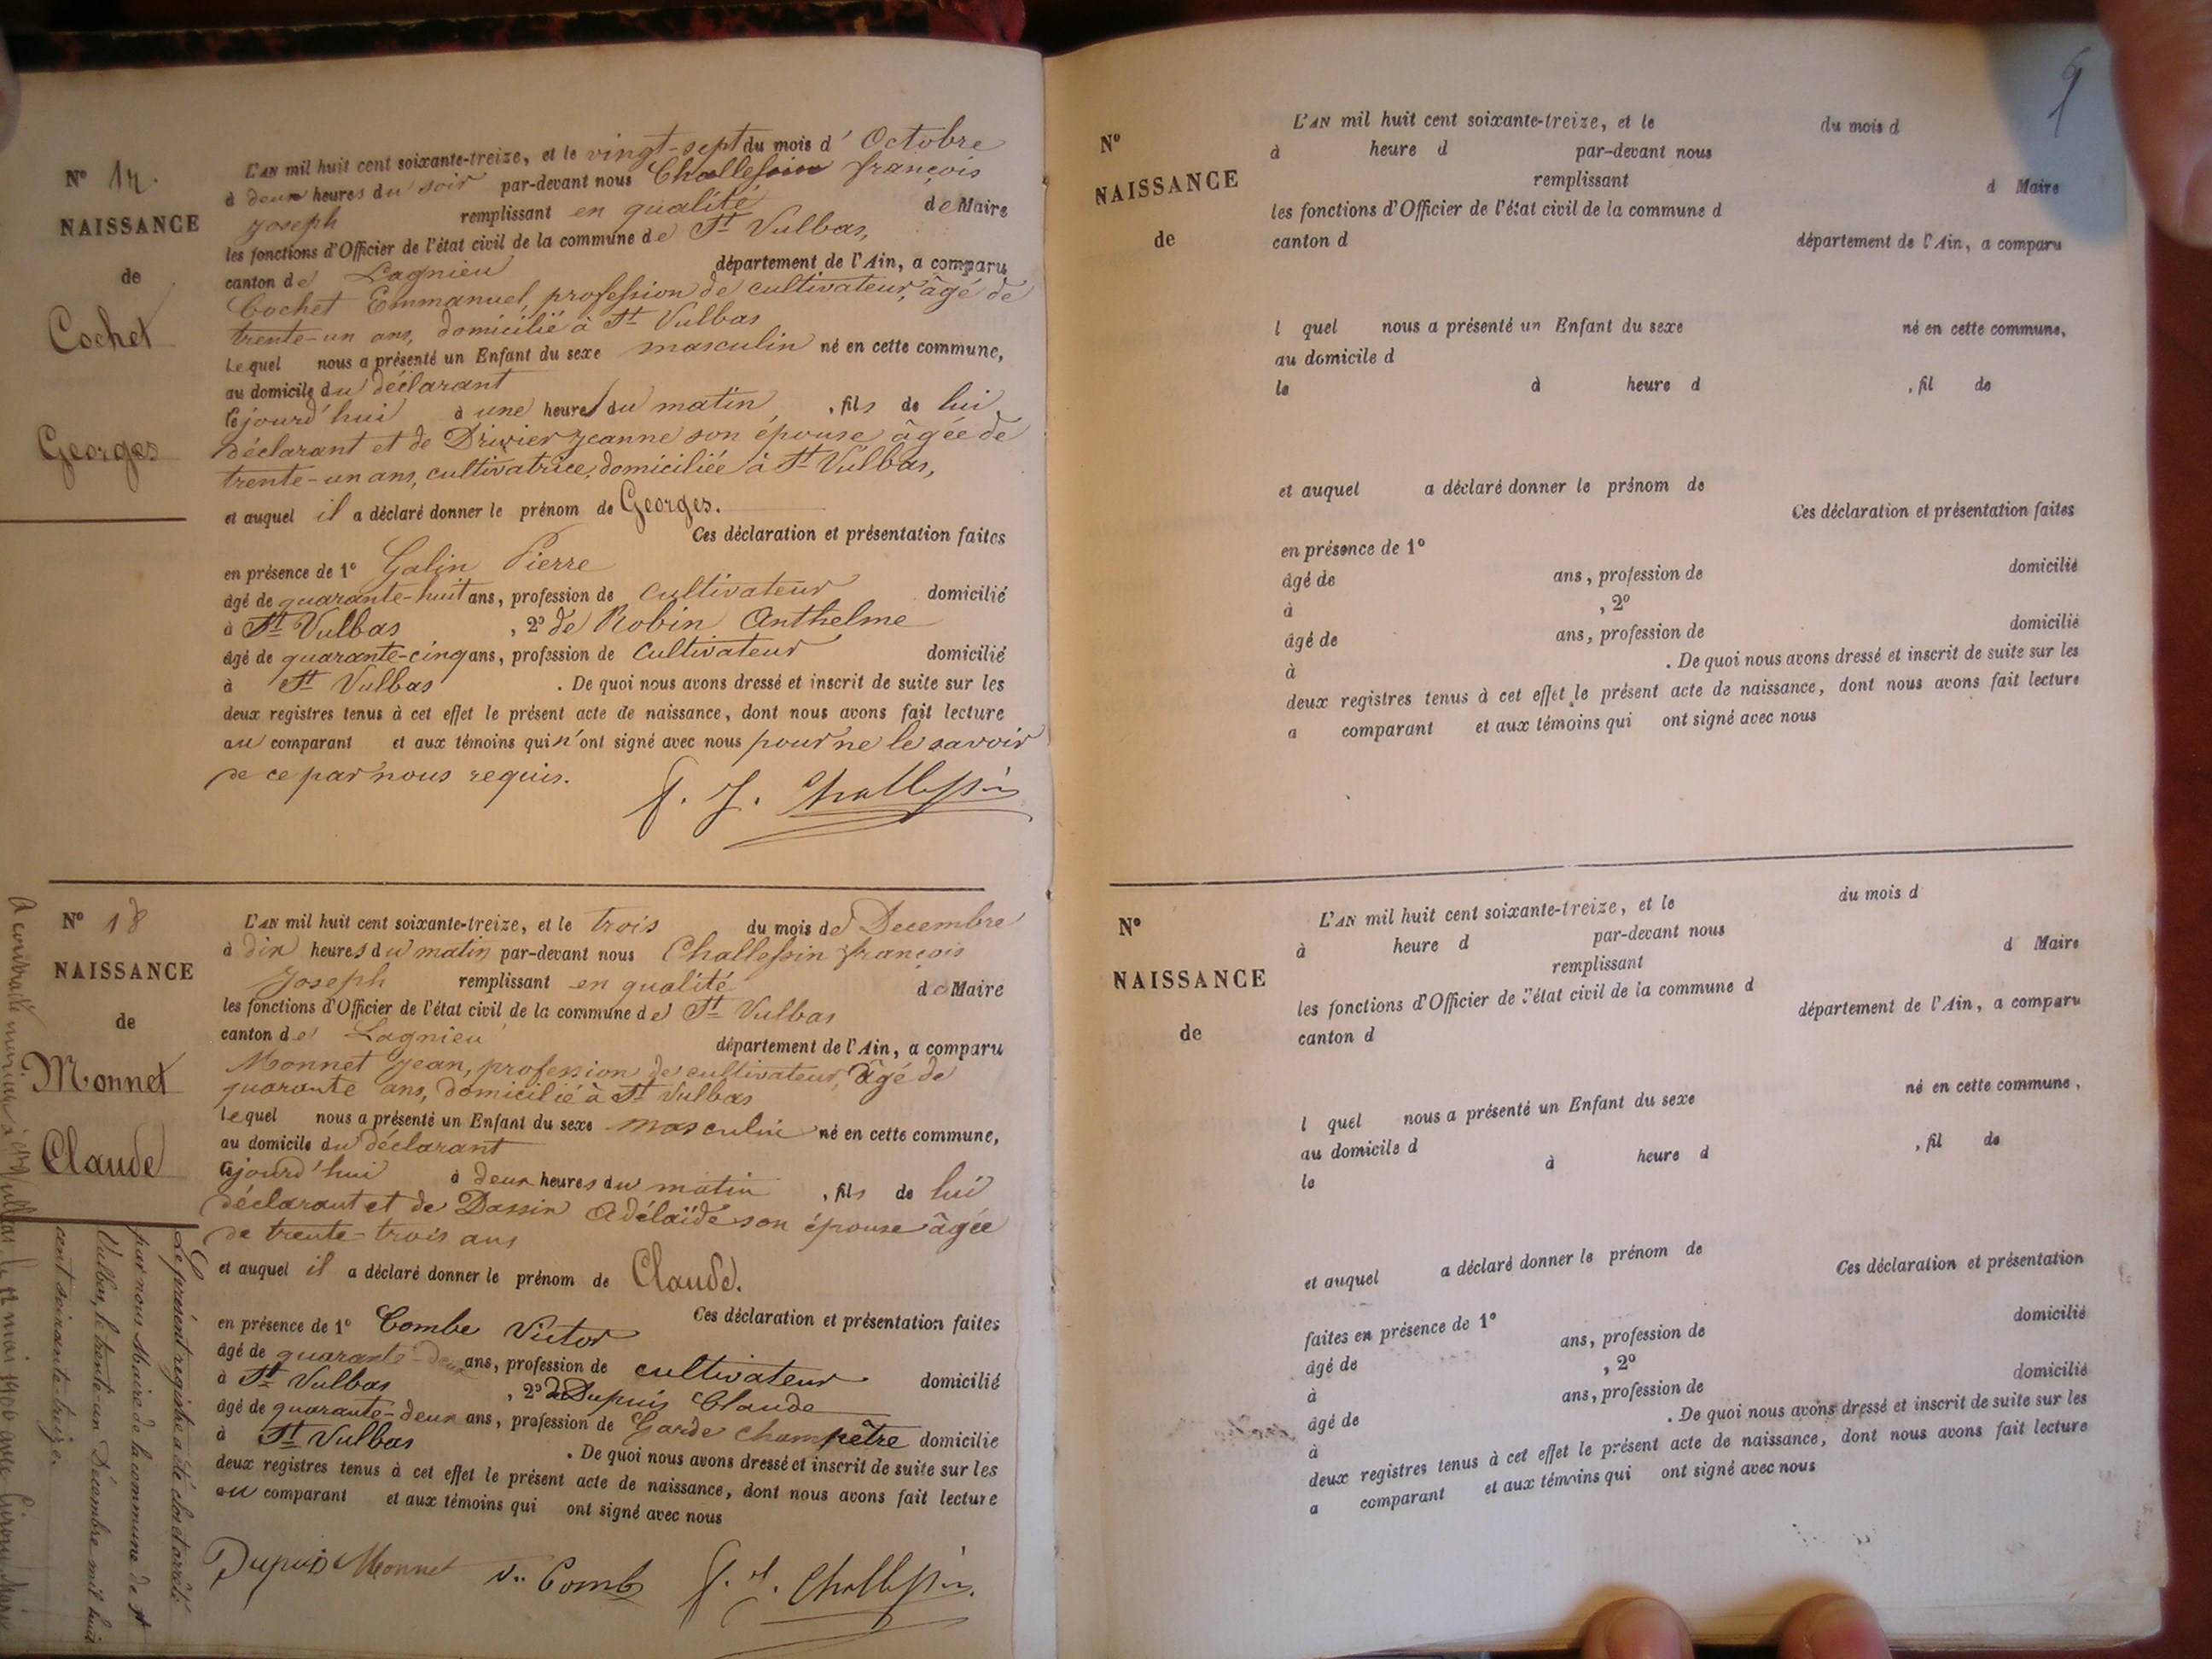 N° 17.
NAISSANCE
de
Cochet
Georges
L'AN mil huit cent soixante-treize, et le vingt-sept du mois d' Octobre
à deux heures du soir par-devant nous Challessin françois
Joseph remplissant en qualité de Maire
les fonctions d'Officier de l'état civil de la commune de St Vulbas,
canton de Lagnieu département de l'Ain, a comparu
Cochet Emmanuel, profession de cultivateur, âgé de
trente-un ans, domicilié à St Vulbas
Lequel nous a présenté un Enfant du sexe masculin né en cette commune,
au domicile du déclarant
Cejourd'hui à une heure du matin, , fils de lui
déclarant et de Jeanne son épouse âgée de
trente-un ans, cultivatrice, domiciliée à St Vulbas,
et auquel il a déclaré donner le prénom de Georges.
Ces déclaration et présentation faites
en présence de 1° Galin Pierre
âgé de quarante-huit ans, profession de cultivateur domicilié
à St Vulbas , 2° de Robin Anthelme
âgé de quarante-cinq ans, profession de cultivateur domicilié
à St Vulbas . De quoi nous avons dressé et inscrit de suite sur les
deux registres tenus à cet effet le présent acte de naissance, dont nous avons fait lecture
au comparant et aux témoins qui n'ont signé avec nous pour ne le savoir
de ce par nous requis.
f. J. Challessin
N° 18
NAISSANCE
de
Monnet
Claude
L'AN mil huit cent soixante-treize, et le trois du mois de Decembre
à dix heures du matin par-devant nous Challessin françois
Joseph remplissant en qualité de Maire
les fonctions d'Officier de l'état civil de la commune de St Vulbas
canton de Lagnieu département de l'Ain, a comparu
Monnet Jean, profession de cultivateur, âgé de
quarante ans, domicilié à St Vulbas
Lequel nous a présenté un Enfant du sexe masculin né en cette commune,
au domicile du déclarant
Cejourd'hui à deux heures du matin , fils de lui
déclarant et de Dassin Adélaïde son épouse âgée
de trente-trois ans
et auquel il a déclaré donner le prénom de Claude.
Ces déclaration et présentation faites
en présence de 1° Combe Victor
âgé de quarante-deux ans, profession de cultivateur domicilié
à St Vulbas , 2° de Dupuis Claude
âgé de quarante-deux ans, profession de Garde champêtre domicilié
à St Vulbas . De quoi nous avons dressé et inscrit de suite sur les
deux registres tenus à cet effet le présent acte de naissance, dont nous avons fait lecture
au comparant et aux témoins qui ont signé avec nous
Dupuis Monnet V. Combe f. J. Challessin
Le présent registre a été clos et arrêté
par nous Maire de la commune de St
Vulbas, le trente-un Décembre mil huit
cent soixante-treize.
A contracté mariage à St Vulbas, le 12 mai 1900 avec
N°
NAISSANCE
de
L'AN mil huit cent soixante-treize, et le du mois d
à heure d par-devant nous
remplissant d Maire
les fonctions d'Officier de l'état civil de la commune d
canton d département de l'Ain, a comparu
l quel nous a présenté un Enfant du sexe né en cette commune,
au domicile d
le à heure d , fil de
et auquel a déclaré donner le prénom de
Ces déclaration et présentation faites
en présence de 1°
âgé de ans, profession de domicilié
à , 2°
âgé de ans, profession de domicilié
à . De quoi nous avons dressé et inscrit de suite sur les
deux registres tenus à cet effet le présent acte de naissance, dont nous avons fait lecture
a comparant et aux témoins qui ont signé avec nous
N°
NAISSANCE
de
L'AN mil huit cent soixante-treize, et le du mois d
à heure d par-devant nous
remplissant d Maire
les fonctions d'Officier de l'état civil de la commune d
canton d département de l'Ain, a comparu
l quel nous a présenté un Enfant du sexe né en cette commune,
au domicile d
le à heure d , fil de
et auquel a déclaré donner le prénom de
Ces déclaration et présentation
faites en présence de 1°
âgé de ans, profession de domicilié
à , 2°
âgé de ans, profession de domicilié
à . De quoi nous avons dressé et inscrit de suite sur les
deux registres tenus à cet effet le présent acte de naissance, dont nous avons fait lecture
a comparant et aux témoins qui ont signé avec nous